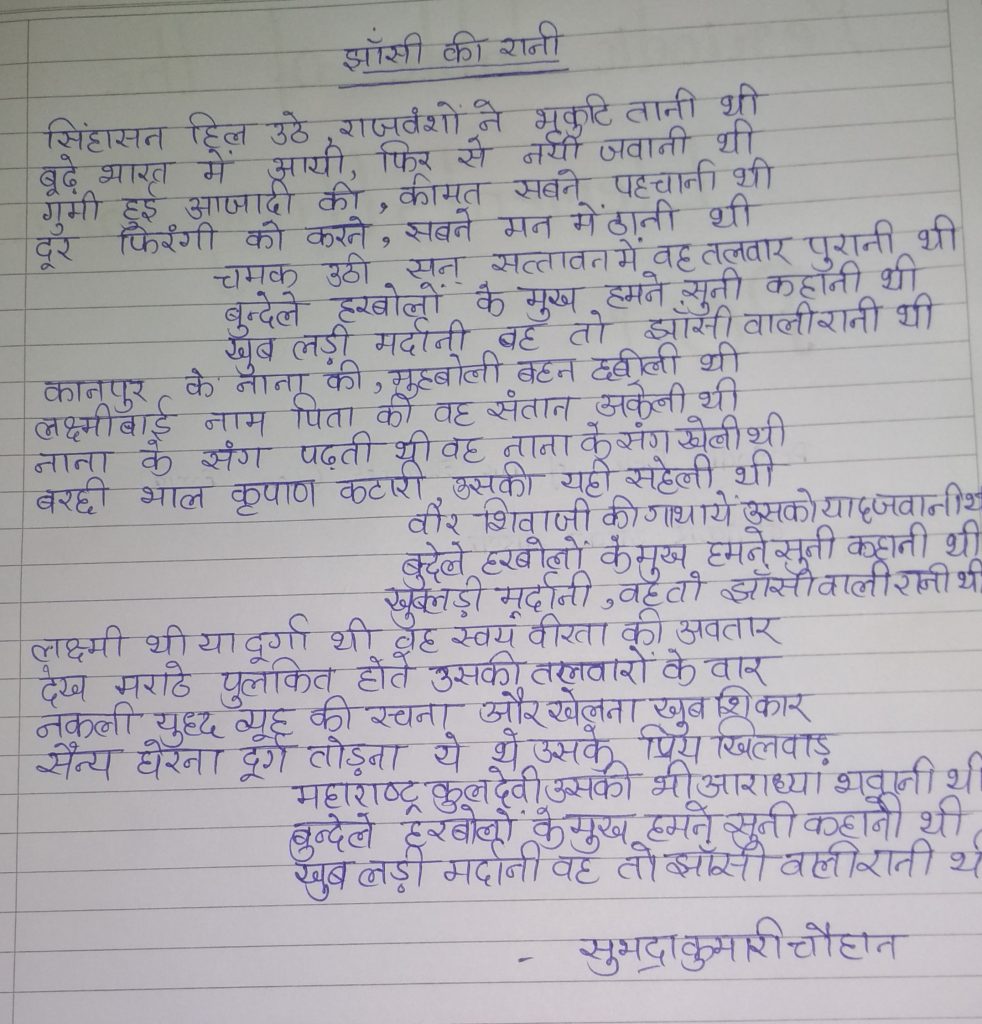 झाँसी की रानी
सिंहासन हिल उठे, राजवंशों ने भृकुटि तानी थी
बूढ़े भारत में आयी, फिर से नयी जवानी थी
गुमी हुई आजादी की, कीमत सबने पहचानी थी
दूर फिरंगी को करने, सबने मन में ठानी थी
चमक उठी सन् सत्तावन में वह तलवार पुरानी थी
बुन्देले हरबोलों के मुख हमने सुनी कहानी थी
खुब लड़ी मर्दानी वह तो झाँसी वाली रानी थी
कानपुर के नाना की, मुहबोली बहन छबीली थी
लक्ष्मीबाई नाम पिता की वह संतान अकेली थी
नाना के संग पढ़ती थी वह नाना के संग खेली थी
बरछी भाल कृपाण कटारी, उसकी यही सहेली थी
वीर शिवाजी की गाथायें उसको याद जवानी थ
बुंदेले हरबोलों के मुख हमने सुनी कहानी थी
खुब लड़ी मर्दानी, वह तो झाँसी वाली रानी थी
लक्ष्मी थी या दूर्गा थी वह स्वयं वीरता की अवतार
देख मराठे पुलकित होते उसकी तलवारों के वार
नकली युध्द व्यूह की रचना और खेलना खुब शिकार
सैन्य घेरना दूर्ग तोड़ना ये थे उसके प्रिय खिलवाड़
महाराष्ट्र कुलदेवी उसकी भी आराध्या भवानी थी
बुन्देले हरबोलों के मुख हमने सुनी कहानी थी
खुब लड़ी मर्दानी वह तो झाँसी वाली रानी थ
- सुभद्राकुमारी चौहान